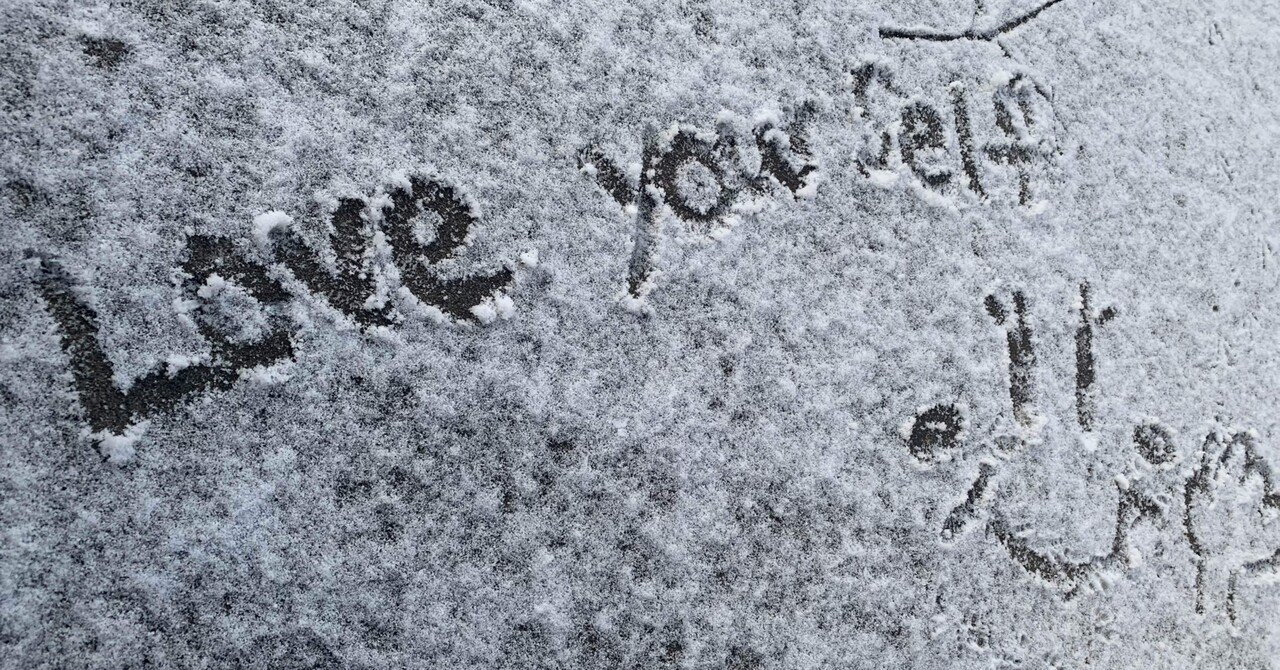 Love your self